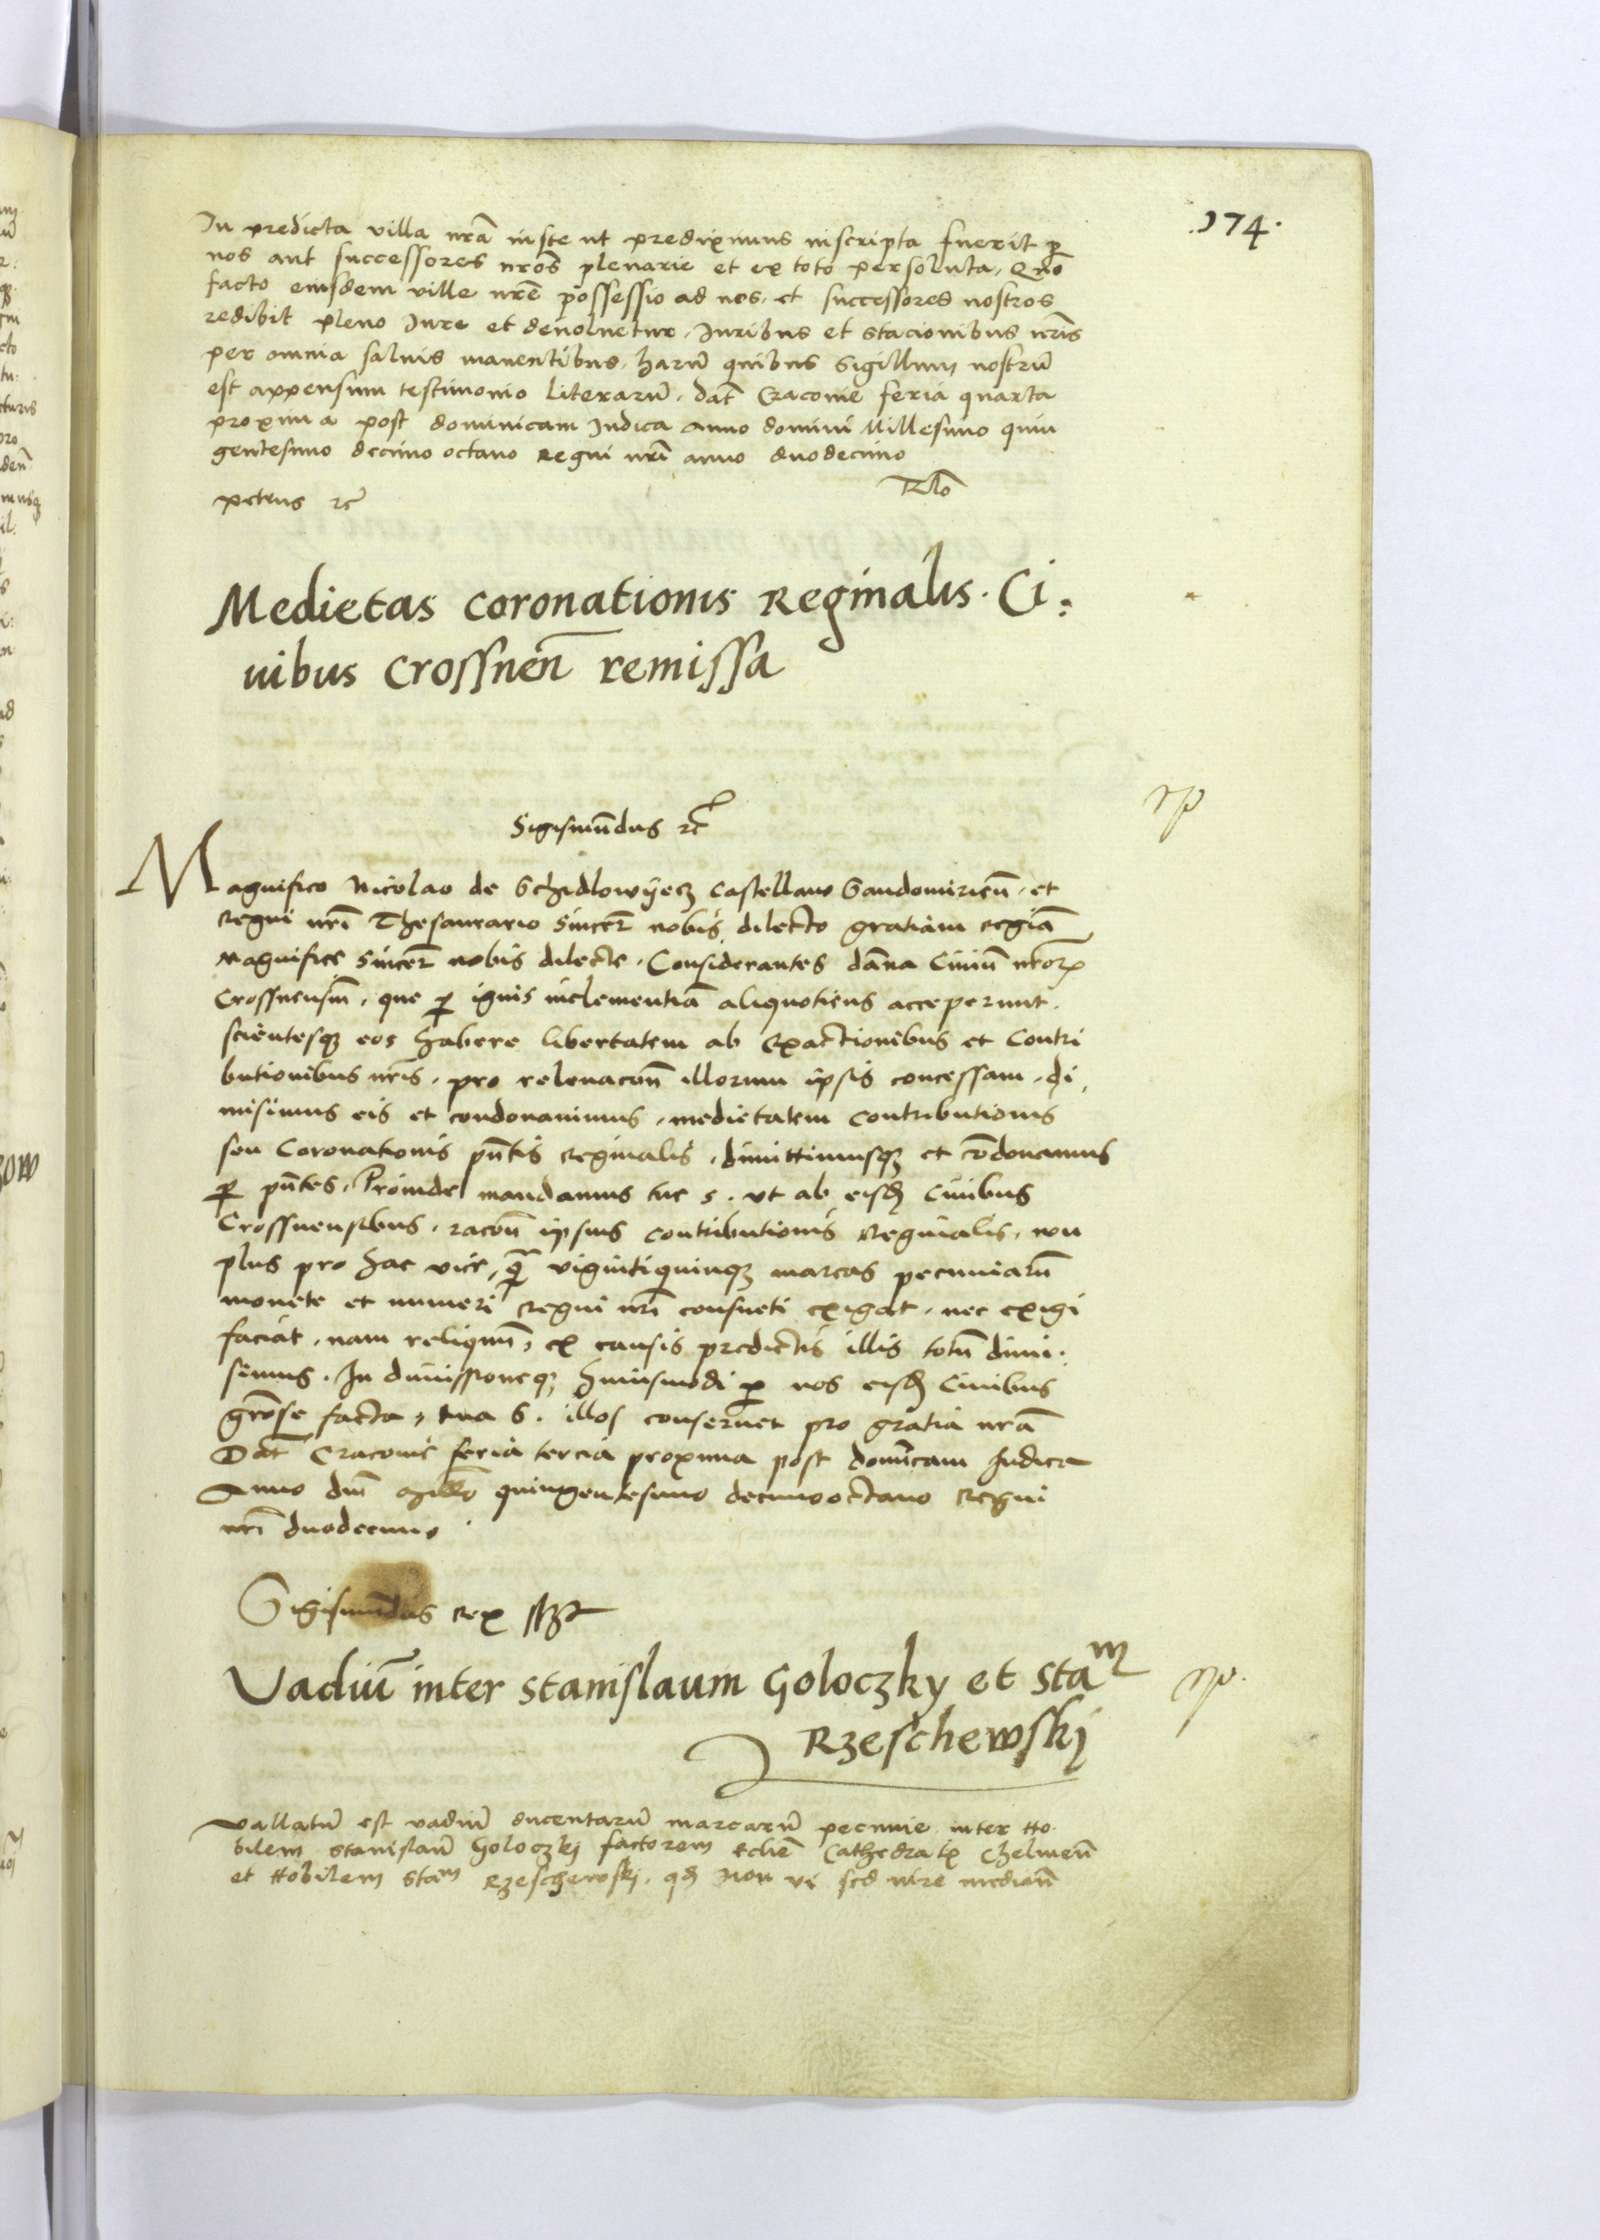 .174.
In predicta villa nrã iuste ut prediximus inscripta fuerit p
nos aut successores nros plenarie et ex toto persoluta, Quo
facto eiusdem ville nrẽ possessio ad nos et successores nostros
redibit pleno Jure et devoluetur. Juribus et stacionibus nris
per omnia saluis manentibus. harũ quibus Sigillum nostrũ
est appensum testimonio literarũ. dat Cracouie feria quarta
proxima post dominicam Judica Anno domini Millesimo quin
gentesimo decimo octauo Regni nri anno duodecimo
Rlo
petrus rc
Medietas coronationis Reginalis. Ci:
uibus Crossneñ remissa
Sigismũdus rc
Magnifico Nicolao de Schidlowyecz Castellano Sandomirieñ. et
Regni nri Thesaurario sincer nobis dilecto gratiam regiã
Magnifice sincer nobis dilecte. Considerantes dãna Ciuiũ nror
Crossnensiũ. que p ignis inclementiã aliquotiens acceperunt.
scientesq eos habere libertatem ab exactionibus et Contri
butionibus nris. pro releuacoñ illorum ipsis concessam. di
misimus eis et condonauimus. medietatem contributionis
seu Coronationis pñtis Reginalis. dimittimusq et cõdonamus
p pñtes. Proinde mandamus tue s. ut ab eisd Ciuibus
Crossnensibus. racoñ ipsius contributionis Reginalis. non
plus pro hac vice, q̃ vigintiquinq marcas pecuniarũ
monete et numeri Regni nri consueti exigat. nec exigi
faciat. nam reliquũ, ex causis predictis illis totũ dimi.
simus. In dimissioneq huiusmodi p nos eisd Ciuibus
grõse facta, tua S. illos conseruet pro gratia nrã
Dat Cracouie feria tercia proxima post domĩcam Judica
Anno dni Millo quingentesimo decimooctauo Regni
nri duodecimo.
Sigismundus Rex sspt
Vadiũ inter Stanislaum Goloczky et Stam
Rzeschewskj
Vallatũ est vadiũ ducentarũ marcarũ pecunie inter No.
bilem Stanislaũ Goloczkj factorem Ecclie Cathedralis Chelmeñ
et Nobilem Stam Rzeschewskj. qd non vi sed iure mediañ